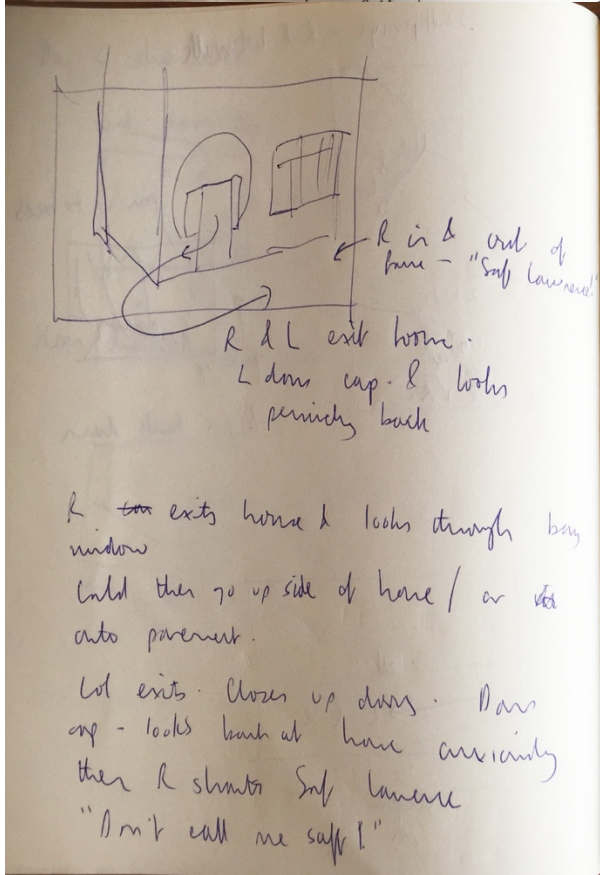 R in & out of
frame - "Saft Lawrence!"
R & L exit home.
L dons cap. & looks
back
R exits house & looks through bay
window
Could then go up side of house / or
onto pavement.
Lol exits. Closes up doors. Dons
cap - looks back at house anxiously
then R shouts Saft Lawrence
"Don't call me saft!"